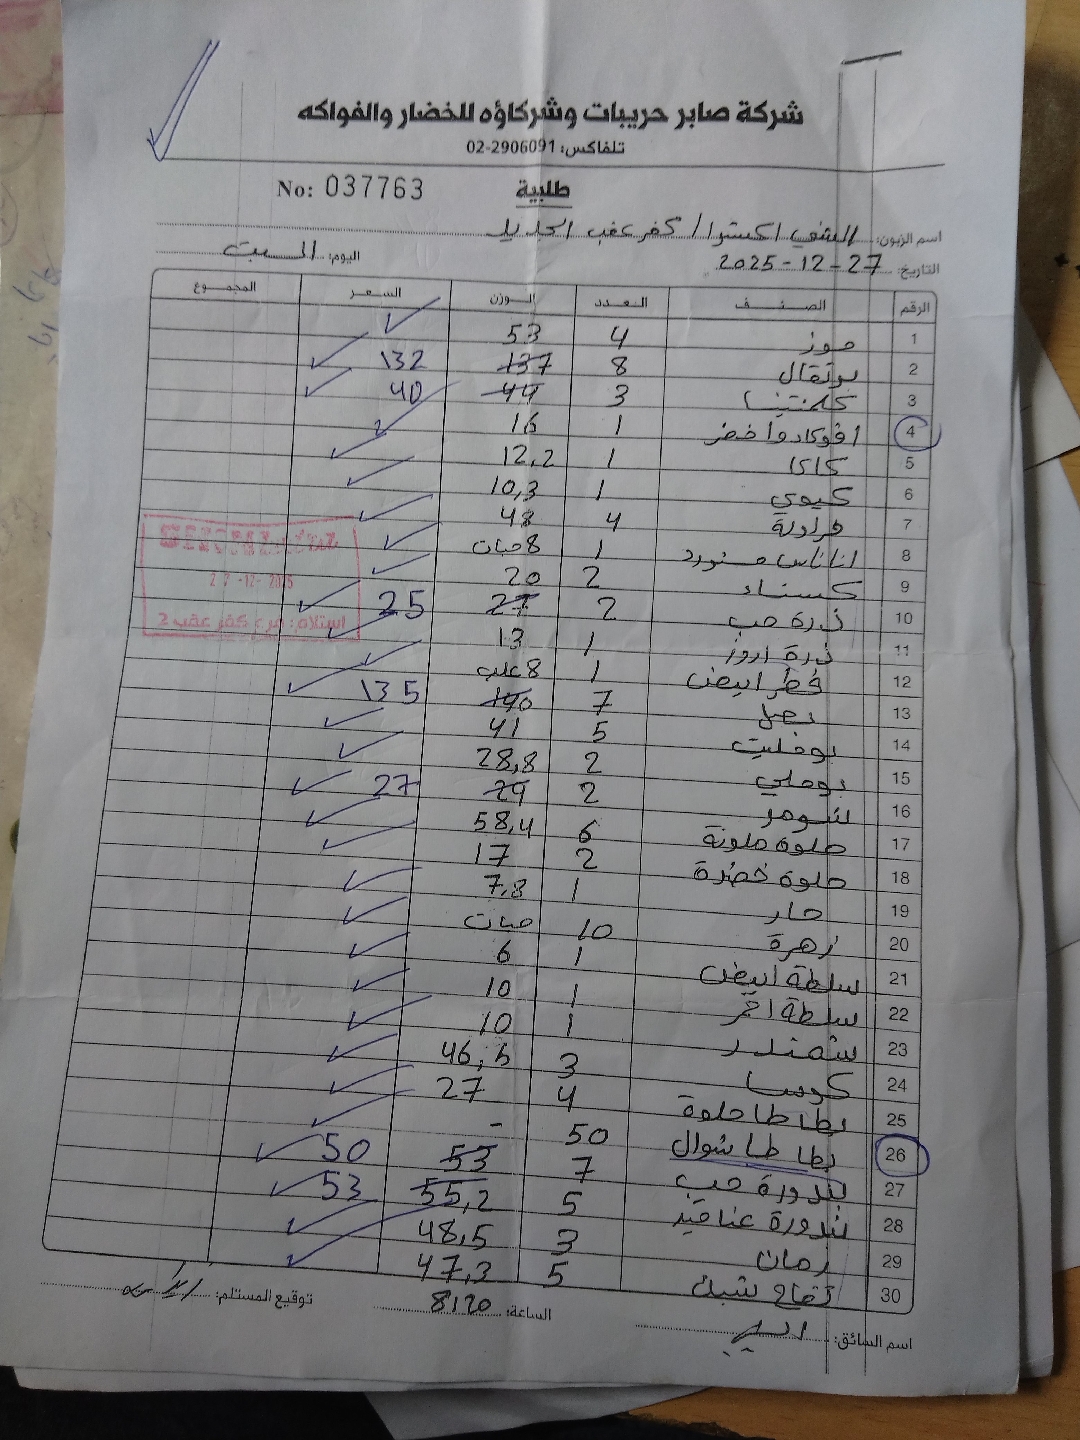 شركة صابر حريبات وشركاؤه للخضار والفواكه
تلفاكس: 02-2906091
طلبية
No: 037763
اسم الزبون: الشني اكسترا / كفر عقب الجديد
التاريخ: 27-12-2025 اليوم: السبت
الرقم الصنف العدد الوزن السعر المجموع
1 موز 4 53
2 برتقال 8 137 132
3 كلمنتينا 3 44 40
4 افوكادو اخضر 1 16
5 كاكا 1 12,2
6 كيوي 1 10,3
7 فراولة 4 48
8 اناناس مستورد 1 8 حبات
9 كستناء 2 20
10 ذرة حب 2 27 25
11 ذرة اروز 1 13
12 فطر ابيض 1 8 علب
13 بصل 7 140 135
14 بوفليت 5 41
15 بوملي 2 28,8
16 شومر 2 29 27
17 حلوة ملونة 6 58,4
18 حلوة خضرة 2 17
19 حار 1 7,8
20 زهرة 10 حبات
21 سلطة ابيض 1 6
22 سلطة احمر 1 10
23 شمندر 1 10
24 كوسا 3 46,5
25 بطاطا حلوة 4 27
26 بطاطا شوال 50 -
27 بندورة حب 7 53 50
28 بندورة عناقيد 5 55,2 53
29 رمان 3 48,5
30 تفاح شبك 5 47,3
27-12-2025
استلام: فرع كفر عقب 2
اسم السائق: الساعة: 8:20 توقيع المستلم: